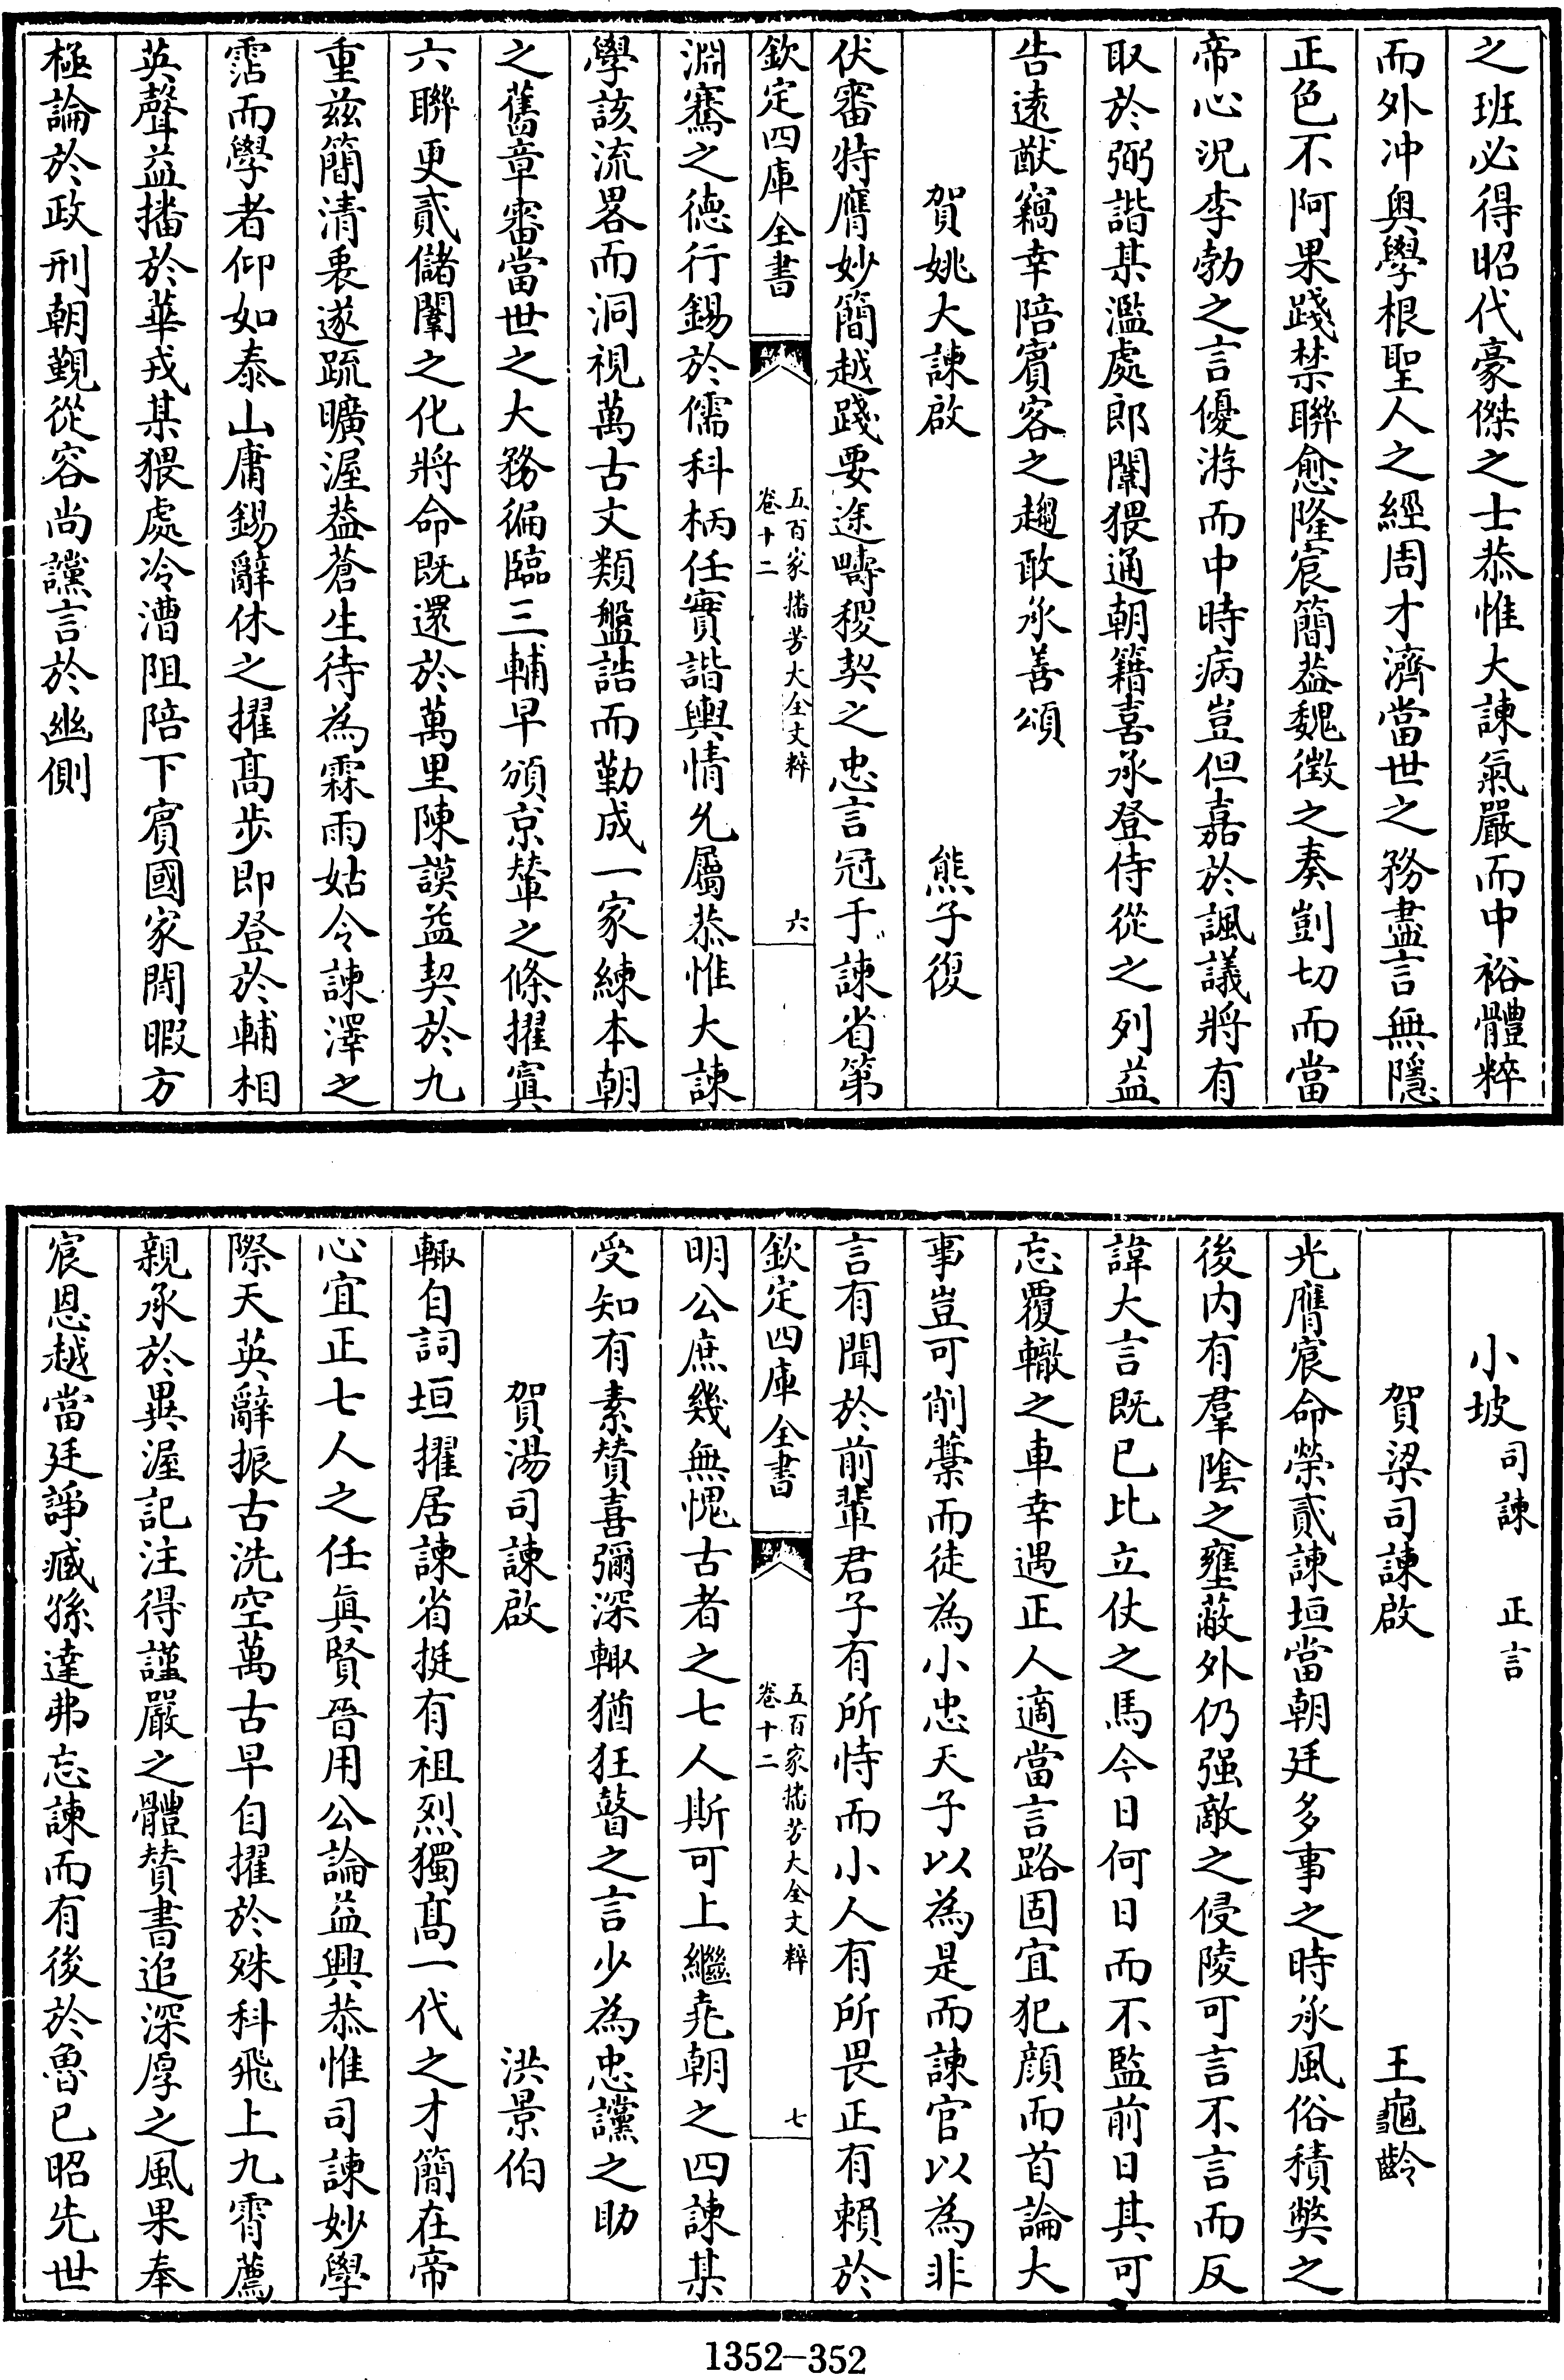 之班必得昭代豪傑之士恭惟大諫氣嚴而中裕體粹
而外冲奥學根聖人之經周才濟當世之務盡言無隱
正色不阿果踐禁聯愈隆宸簡葢魏徴之奏剴切而當
帝心況李勃之言優游而中時病豈但嘉於諷議將有
取於弼諧某濫處郎闈猥通朝籍喜承登侍從之列益
告逺猷竊幸陪賓客之趨敢承善頌
賀姚大諫啟　熊子復
伏審特膺妙簡越踐要途疇稷契之忠言冠于諫省第
欽定四庫全書
五百家播芳大全文粹
卷十二
六
淵騫之徳行錫於儒科柄任實諧輿情允屬恭惟大諫
學該流畧而洞視萬古文類盤誥而勒成一家練本朝
之舊章審當世之大務徧臨三輔早頒京輦之條擢寘
六聯更貳儲闈之化將命既還於萬里陳謨益契於九
重兹簡清衷遂䟽曠渥葢蒼生待為霖雨姑令諫澤之
霑而學者仰如泰山庸錫辭休之擢髙步即登於輔相
英聲益播於華戎某猥處冷漕阻陪下賓國家閒暇方
極論於政刑朝覲從容尚讜言於幽側
小坡司諫　正言
賀梁司諫啟　王龜齡
光膺宸命榮貳諫垣當朝廷多事之時承風俗積弊之
後内有羣隂之壅蔽外仍强敵之侵陵可言不言而反
諱大言既已比立仗之馬今日何日而不監前日其可
忘覆轍之車幸遇正人適當言路固宜犯顔而首論大
事豈可削藁而徒為小忠天子以為是而諫官以為非
言有聞於前輩君子有所恃而小人有所畏正有賴於
欽定四庫全書
五百家播芳大全文粹
卷十二
七
明公庶幾無愧古者之七人斯可上繼堯朝之四諫某
受知有素賛喜彌深輙猶狂瞽之言少為忠讜之助
賀湯司諫啟　洪景伯
輙自詞垣擢居諫省挺有祖烈獨髙一代之才簡在帝
心宜正七人之任眞賢晉用公論益興恭惟司諫妙學
際天英辭振古洗空萬古早自擢於殊科飛上九霄薦
親承於異渥記注得謹嚴之體賛書追深厚之風果奉
宸恩越當廷諍臧孫達弗忘諫而有後於魯已昭先世
1352-352